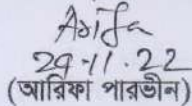 Arifa
29-11.22
(আরিফা পারভীন)